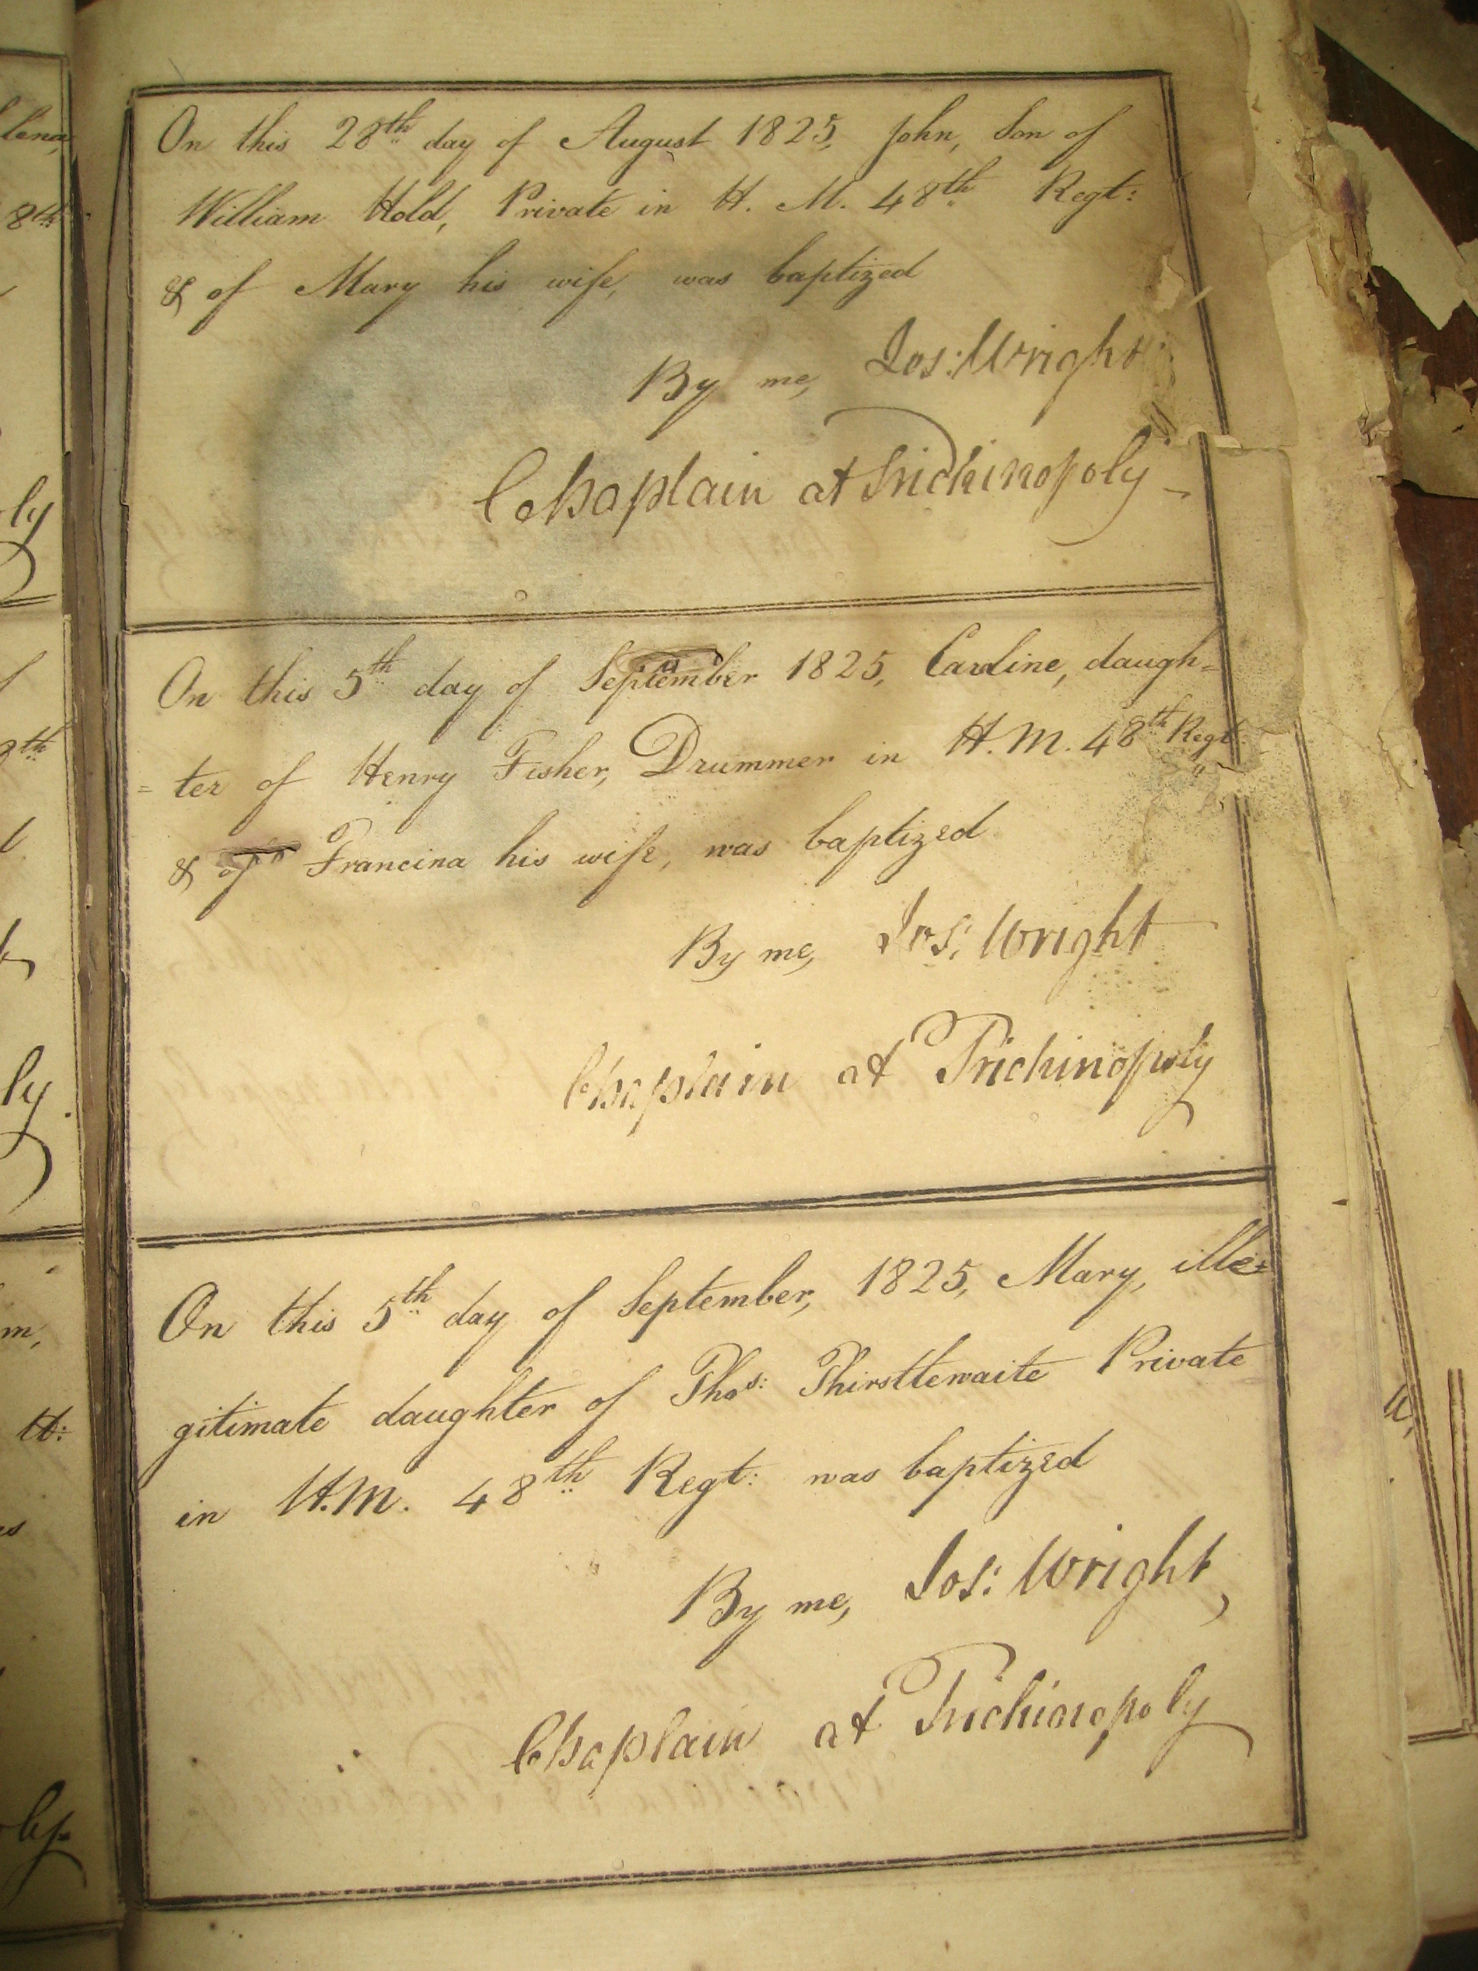 On this 28th day of August 1825, John, Son of
William Hold, Private in H. M. 48th Regt:
& of Mary his wife, was baptized
By me, Jos: Wright
Chaplain at Trichinopoly
On this 5th day of September 1825, Caroline, daugh=
=ter of Henry Fisher, Drummer in H. M. 48th Regt
& of Francina his wife, was baptized
By me, Jos: Wright
Chaplain at Trichinopoly
On this 5th day of September, 1825, Mary, ille=
gitimate daughter of Thos: Thirstlewaite Private
in H.M. 48th Regt: was baptized
By me, Jos: Wright,
Chaplain at Trichinopoly